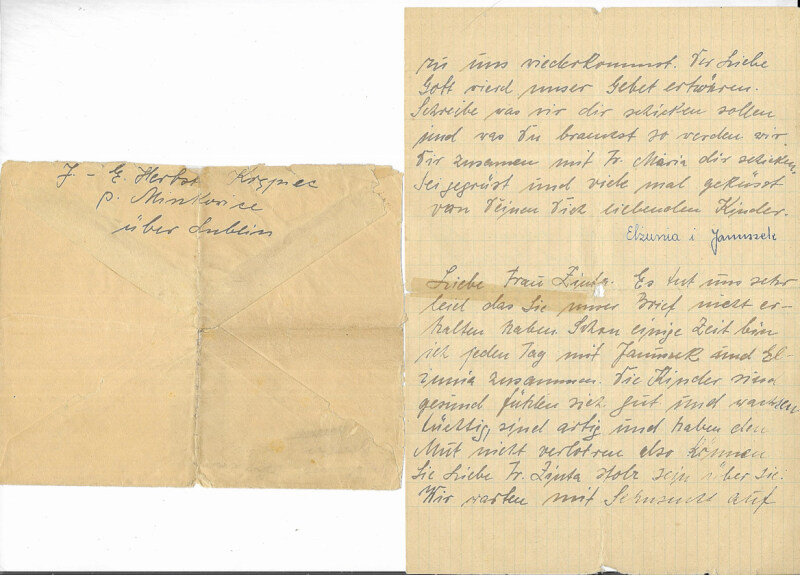 J. - E. Herbst Krępiec
p. Minkowice
über Lublin
zu uns viederkommst. Der Liebe
Gott vierd unser Gebet erhören.
Schreibe vas vir dir schicken sollen
und vas Du brauchst so verden vir
Dir zusamen mit Fr. Maria dir schicken.
Sei gegrüst und viele mal geküsst
von Deinen Dich liebenden Kinder.
Elżunia i Janussek
Liebe Frau Zinta. Es tut uns sehr
leid das Sie unser Brief nicht er-
halten haben Schon einige Zeit bin
ich jeden Tag mit Janussek und El-
żunia zusammen. Die Kinder sind
gesund fühlen sich gut und wachsen
tüchtig, sind artig und haben den
Mut nicht verloren also können
Sie Liebe Fr. Zinta stolz sein über Sie.
Wir warten mit Sehnsucht auf